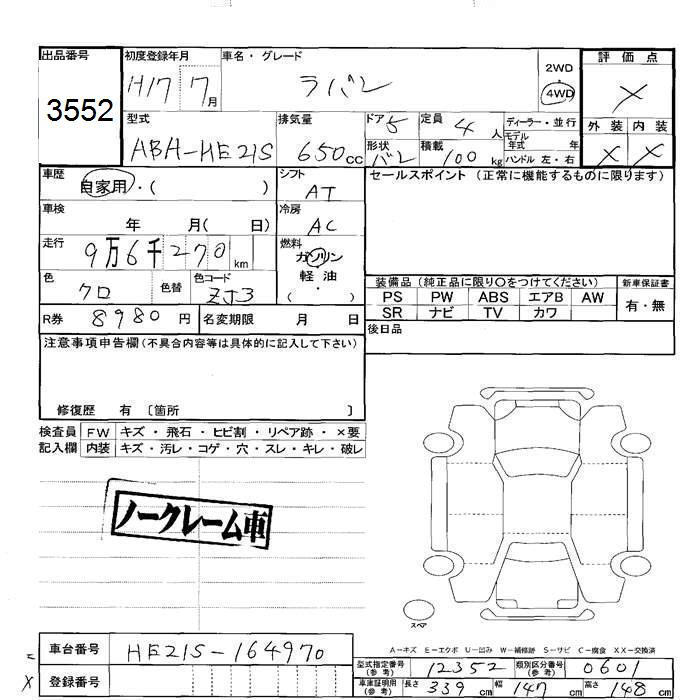 出品番号
3552
初度登録年月
H17 7月
車名・グレード
ラパン
2WD
4WD
評価点
×
外装 内装
× ×
型式
ABA-HE21S
排気量
650cc
ドア 5
形状
バン
定員 4人
積載 100kg
ディーラー・並行
モデル年式 年
ハンドル 左・右
車歴
自家用・( )
シフト
AT
セールスポイント(正常に機能するものに限ります)
車検
年 月( 日)
冷房
AC
走行
9万6千270km
燃料
ガソリン
軽油
( ・ )
色
クロ
色替
色コード
ZJ3
装備品(純正品に限り○をつけてください)
PS PW ABS エアB AW
SR ナビ TV カワ
新車保証書
有・無
R券 8980円
名変期限 月 日
後日品
注意事項申告欄(不具合内容等は具体的に記入して下さい)
修復歴 有〔箇所 〕
検査員 FW キズ・飛石・ヒビ割・リペア跡・×要
記入欄 内装 キズ・汚レ・コゲ・穴・スレ・キレ・破レ
ノークレーム車
スペア
A-キズ E-エクボ U-凹み W-補修跡 S-サビ C-腐食 XX-交換済
車台番号 HE21S-164970
登録番号
型式指定番号(参考) 12352 類別区分番号(参考) 0601
車庫証明用(参考) 長さ 339cm 幅 147cm 高さ 148cm